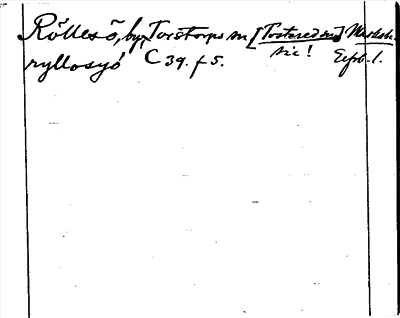 Rőlleső, by, Torstorps sn [Tostared sn] Marksh.
ryllosyó C 39. f 5. sic! Erfb. 1.